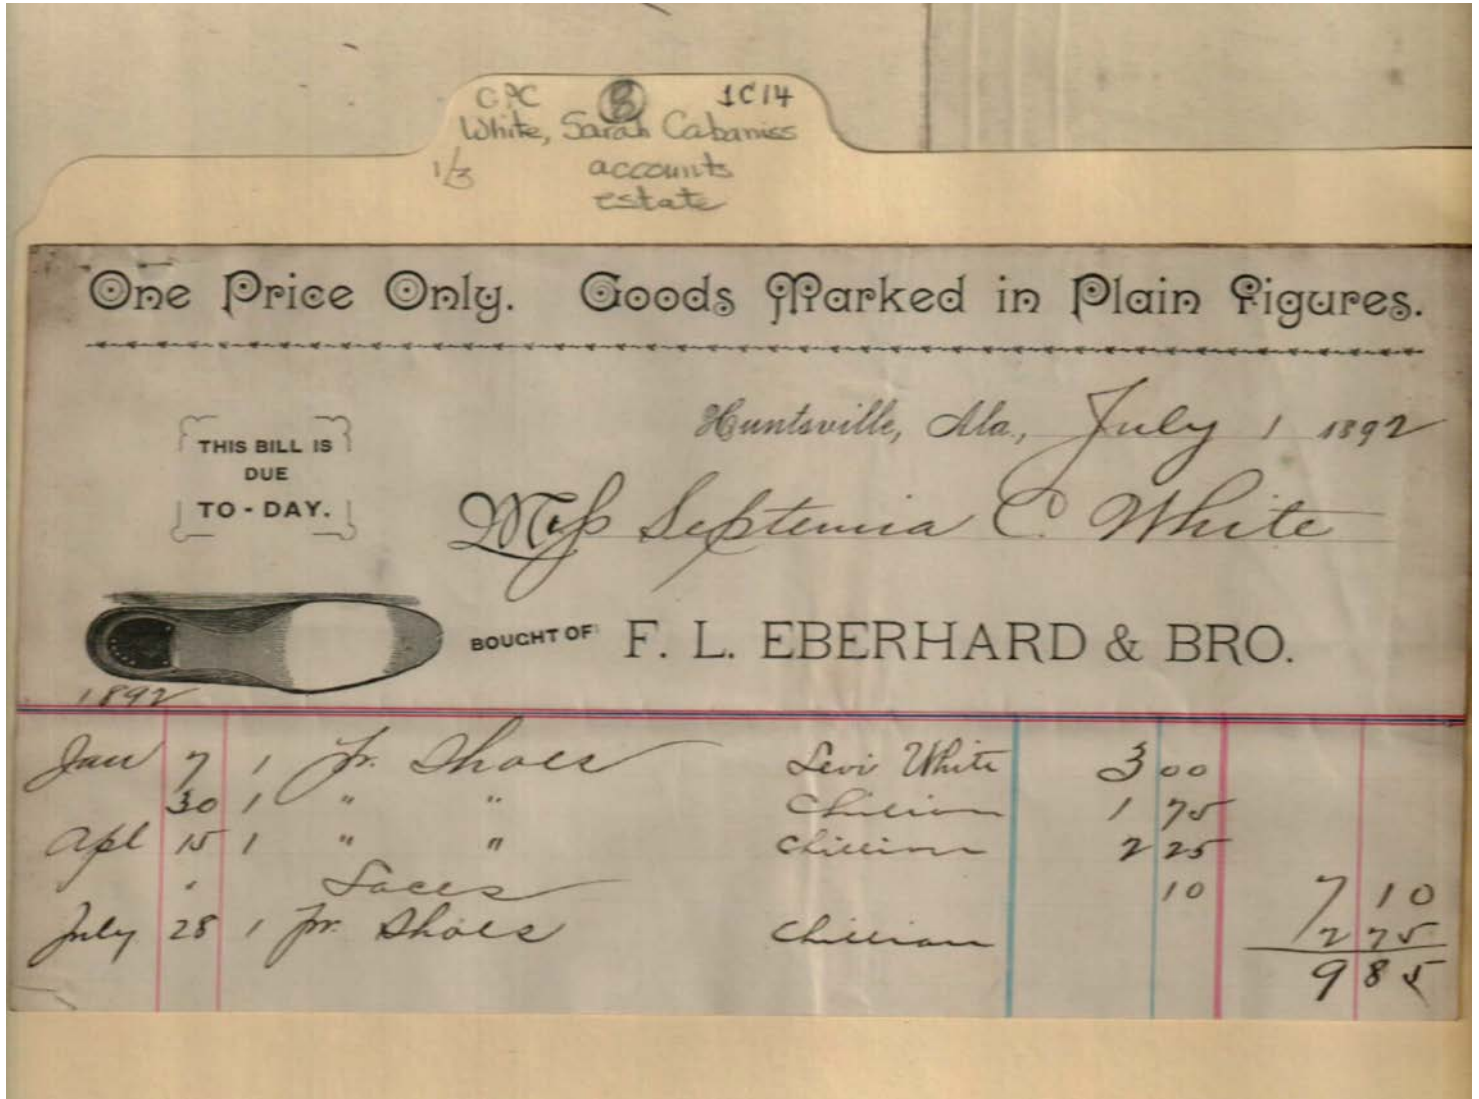 GPC B 1C14
White, Sarah Cabaniss
1/3 accounts
estate
One Price Only. Goods Marked in Plain Figures.
Huntsville, Ala., July 1 1892
THIS BILL IS
DUE
TO-DAY.
Miss Septemia C. White
BOUGHT OF F. L. EBERHARD & BRO.
1892
Jan 7 1 Pr. Shoes Levi White 3 00
30 1 " " Chillian 1 75
Apl 15 1 " " Chillian 2 25
" Laces 10 7 10
July 28 1 Pr. Shoes Chillian 2 75
9 85